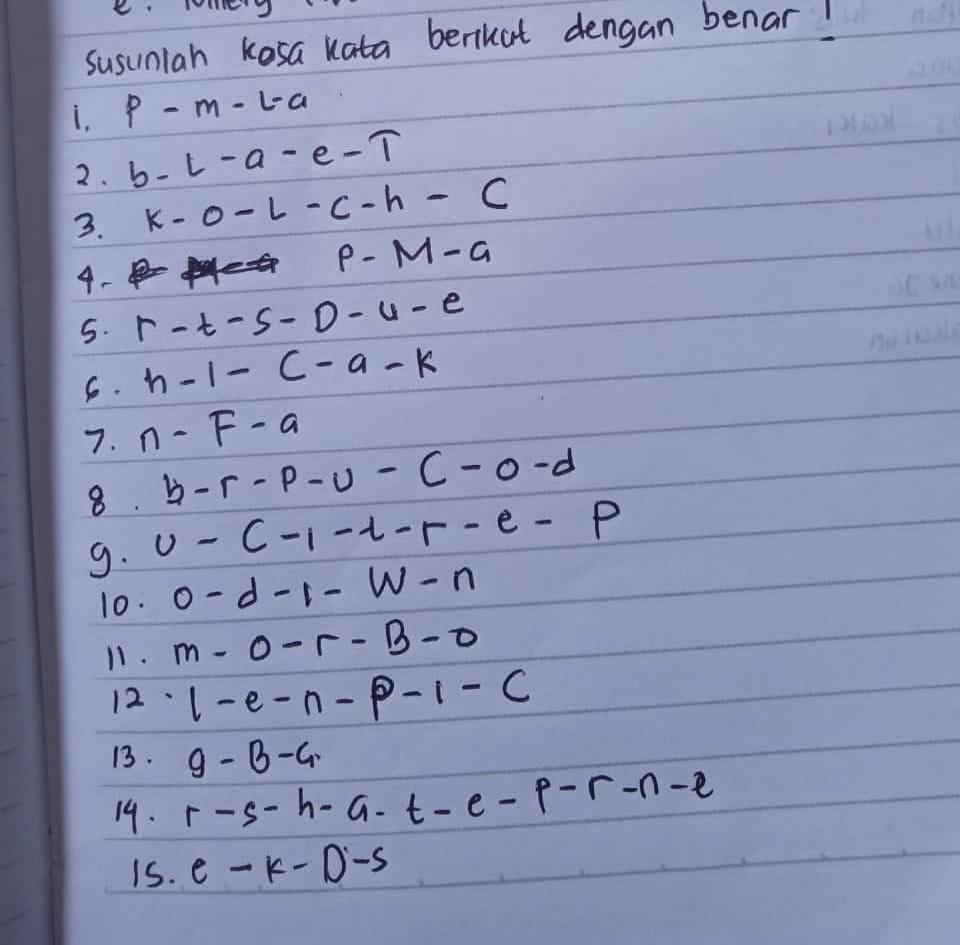 Susunlah kosa kata berikut dengan benar !
1. P - m - L - a
2. b - L - a - e - T
3. K - O - L - C - h - C
4. P - M - a
5. r - t - s - D - u - e
6. h - l - C - a - k
7. n - F - a
8. b - r - P - U - C - o - d
9. U - C - i - t - r - e - P
10. o - d - i - W - n
11. m - O - r - B - o
12. l - e - n - P - i - C
13. g - B - a
14. r - s - h - a - t - e - P - r - n - e
15. e - k - D - s